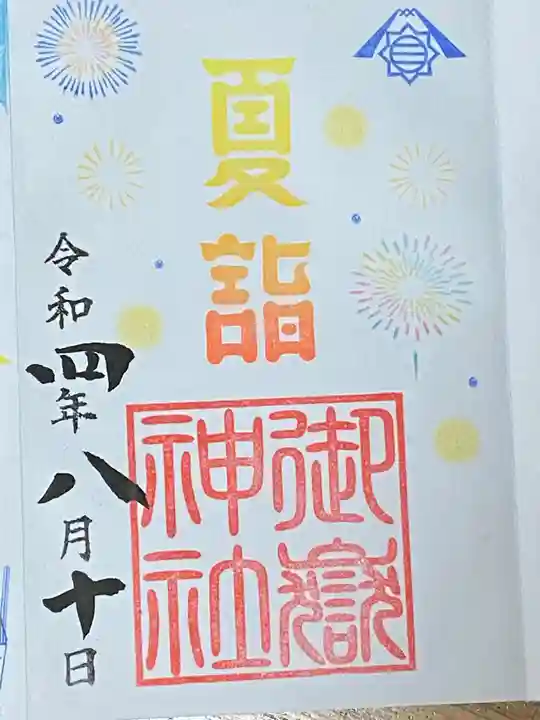 夏詣
御嶽神社
令和四年八月十日